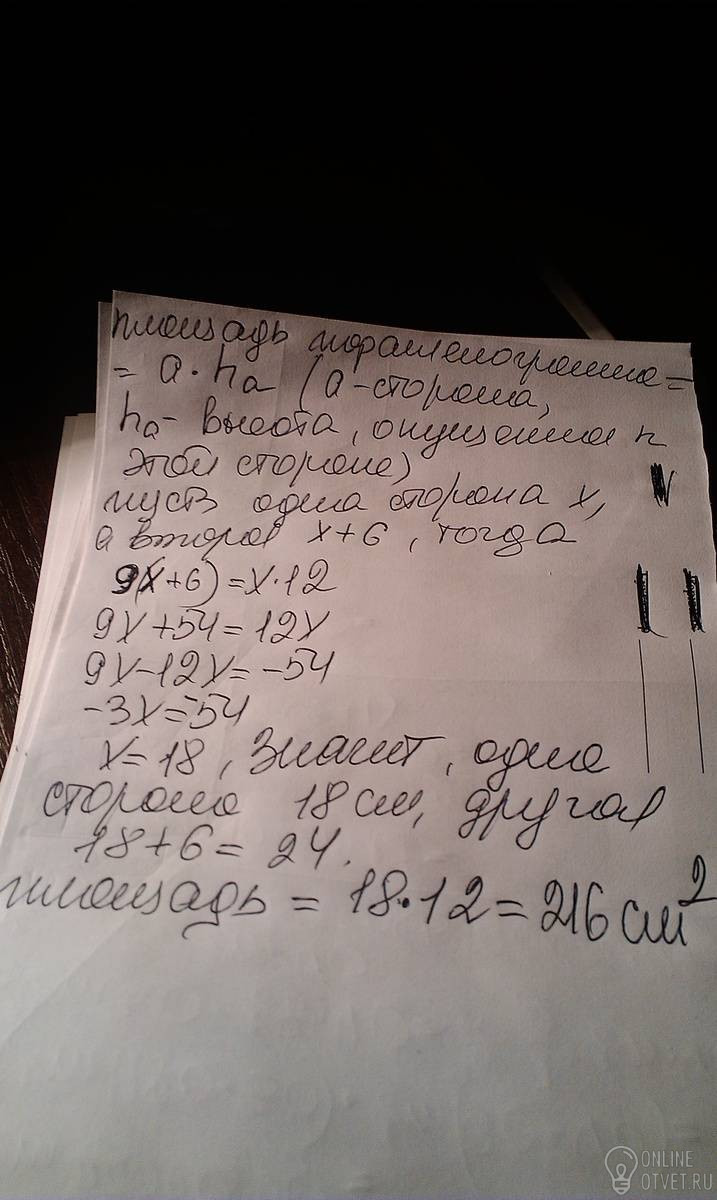 площадь параллелограмма =
= a · hₐ (a - сторона,
hₐ - высота, опущенная к
этой стороне)
пусть одна сторона x,
а вторая x + 6, тогда
9(x + 6) = x · 12
9x + 54 = 12x
9x - 12x = -54
-3x = -54
x = 18, значит, одна
сторона 18 см, другая
18 + 6 = 24.
площадь = 18 · 12 = 216 см²
ONLINE
OTVET.RU